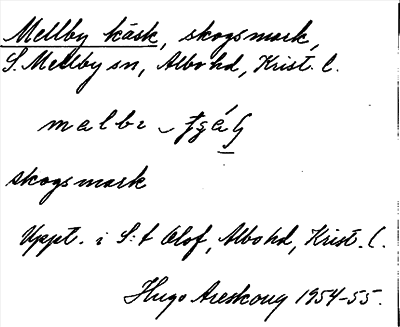 Mellby kåsk, skogsmark,
S. Mellby sn, Albo hd, Krist. l.
skogsmark
Uppt. i S:t Olof, Albo hd, Krist. l.
Hugo Areskoug 1954-55.